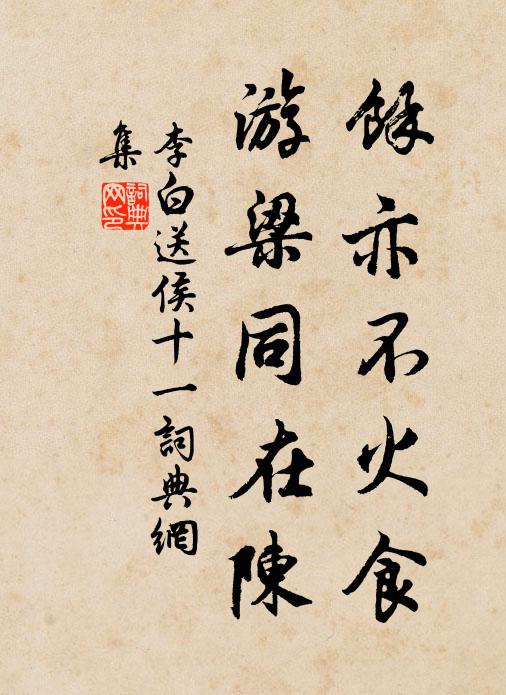 餘亦不火食
游梁同在陳
李白送侯十一詞典網
集
詞典
网印